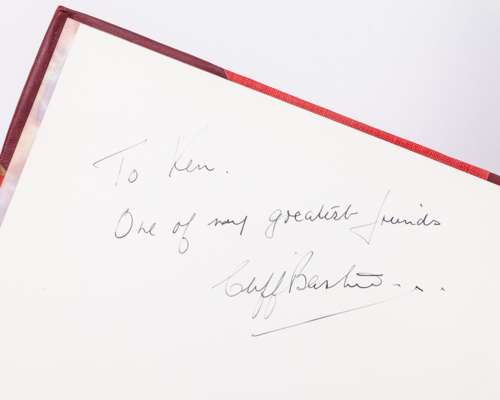 To Ken.
One of my greatest friends
Cliff Bastin...